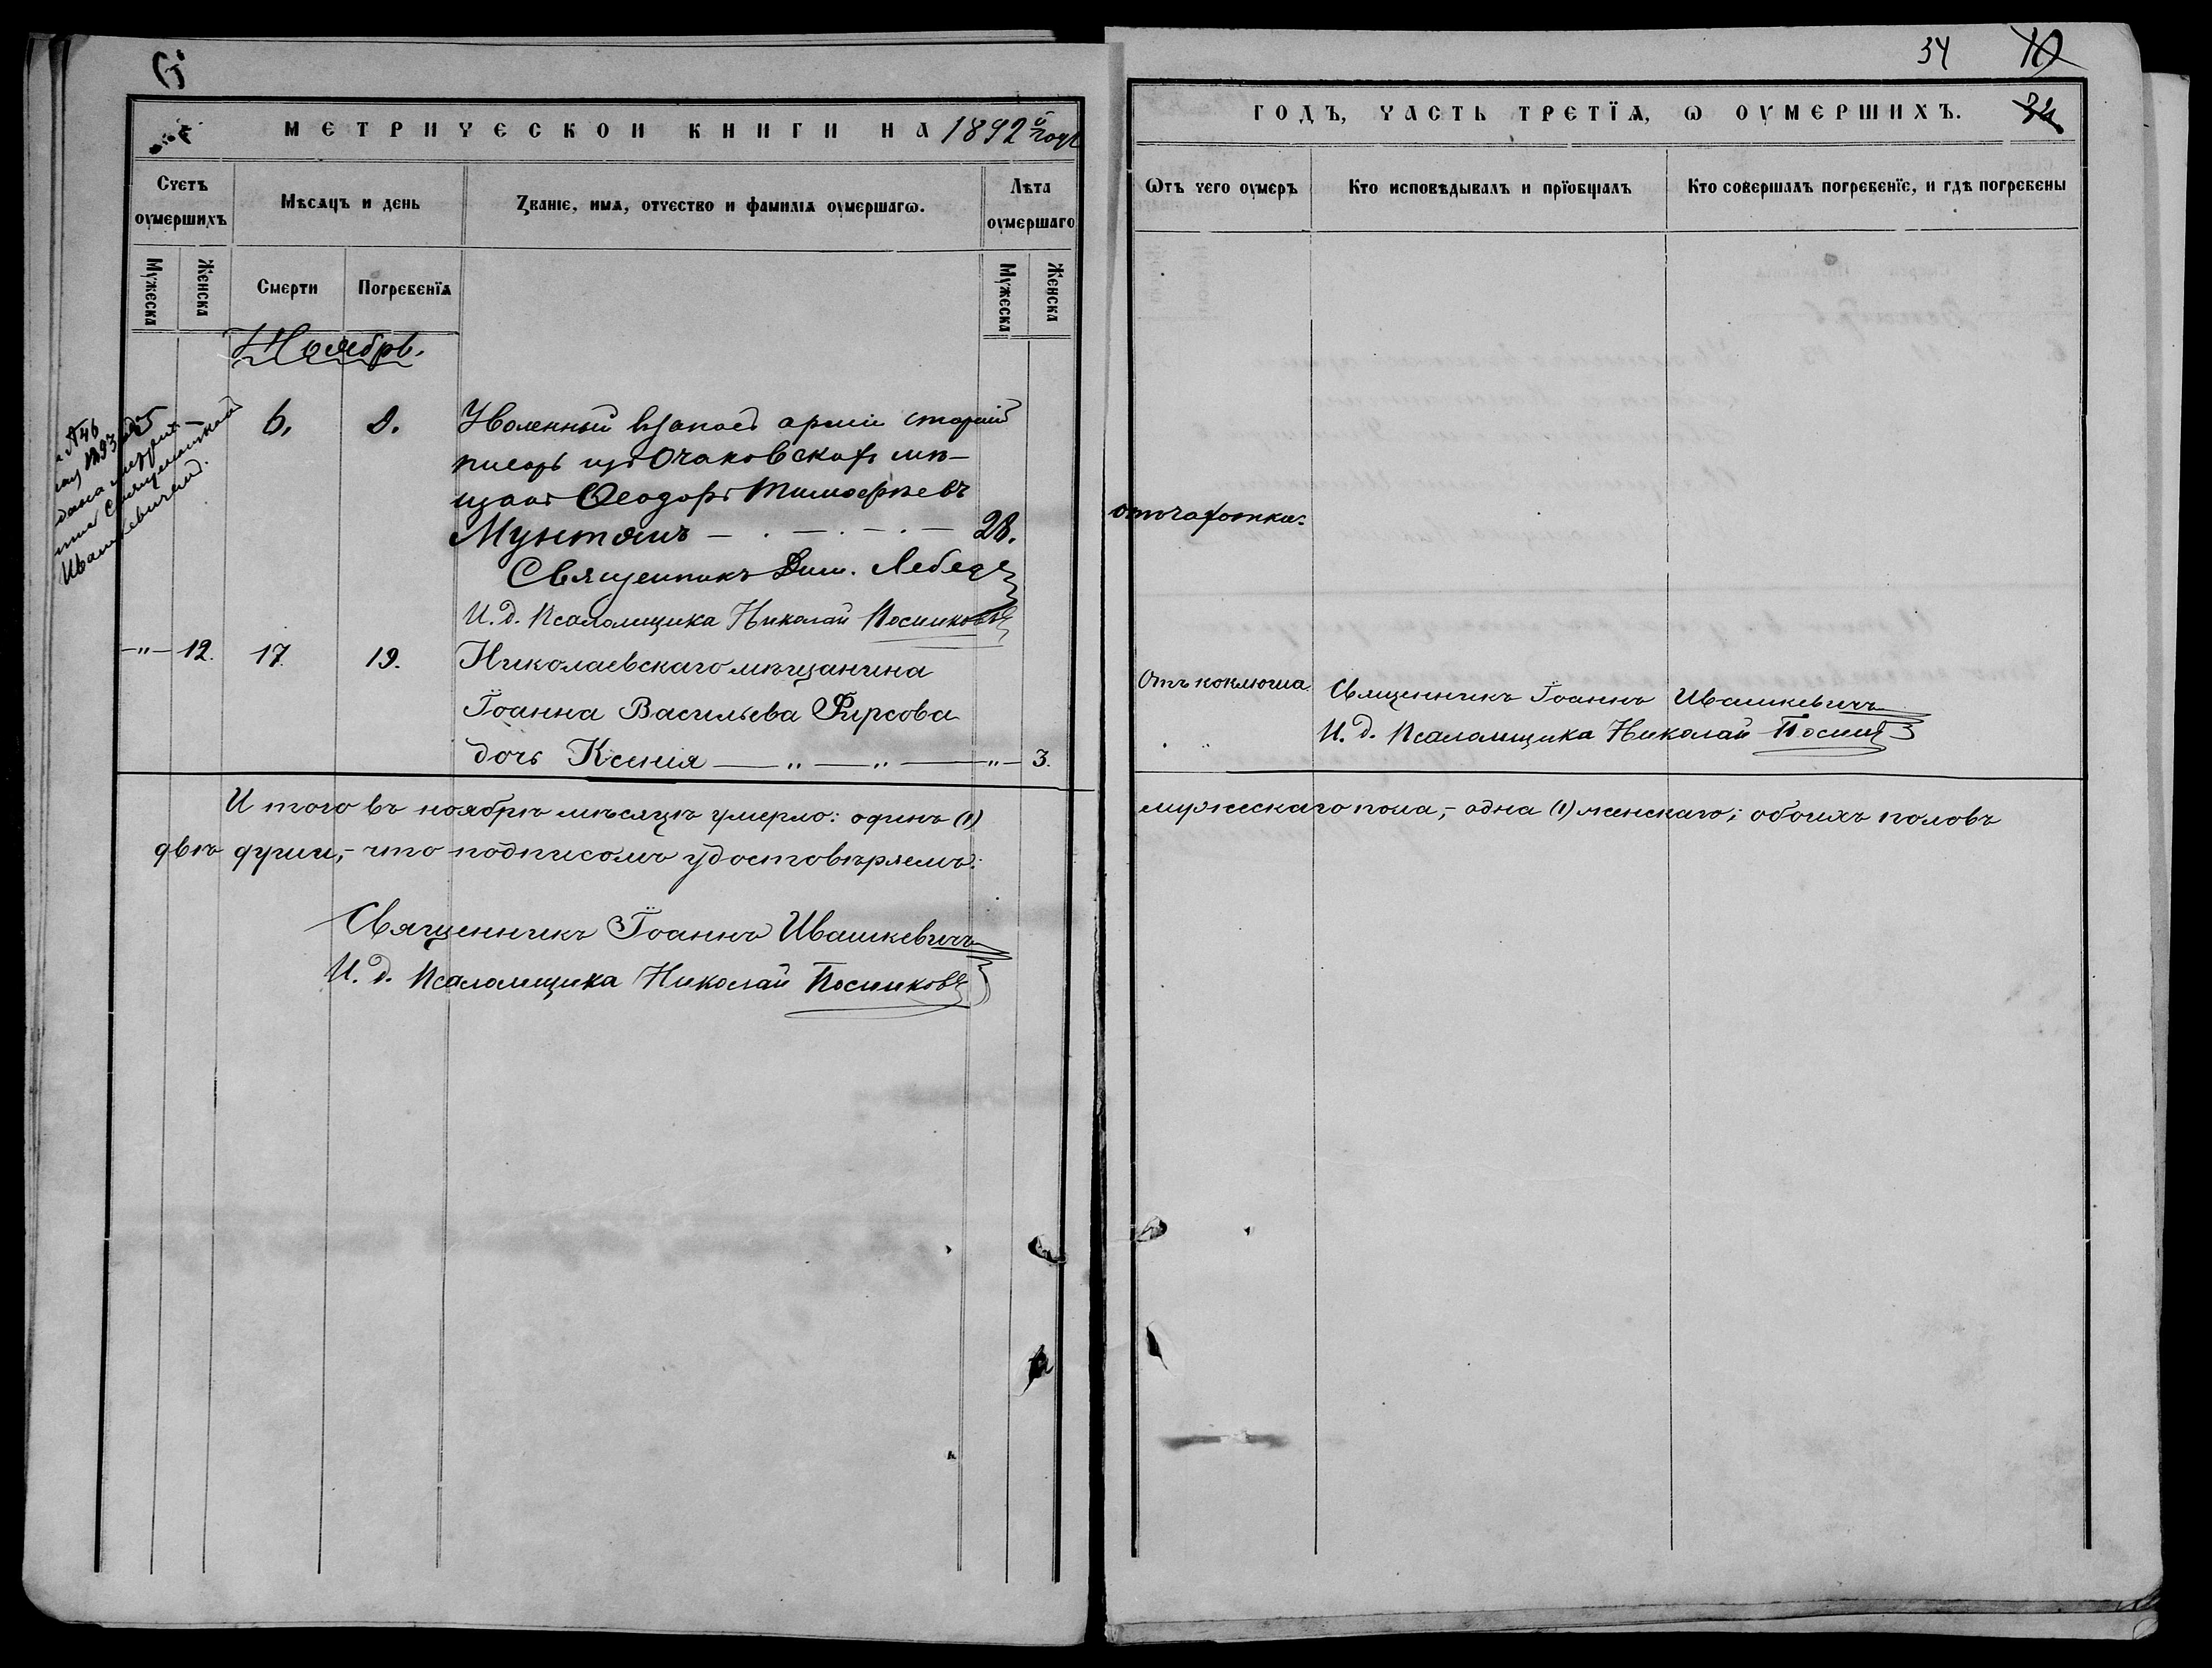 МЕТРИЧЕСКОЙ КНИГИ НА 1892й годъ
Счетъ оумершихъ
Мѣсяцъ и день
Званіе, имя, отчество и фамилія оумершагѡ.
Лѣта оумершаго
Мужеска
Женска
Смерти
Погребенїя
Мужеска
Женска
Ноябрь.
№46
1893
Священникъ
Ивашкевичъ.
5 — 6. 8. Уволенный въ запасъ арміи старшій
писарь изъ Очаковскихъ мѣ-
щанъ Ѳеодоръ Тимоѳѣевъ
Мунтянъ — . — . — . — 28.
Священникъ Дим. Лебеде
И. д. Псаломщика Николай Посниковъ
—"— 12. 17. 19. Николаевскаго мѣщанина
Іоанна Васильева Фирсова
дочь Ксенія — " — " — " — 3.
И того въ ноябрѣ мѣсяцѣ умерло: одинъ (1)
двѣ души, – что подписомъ удостовѣряемъ:
Священникъ Іоаннъ Ивашкевичъ
И. д. Псаломщика Николай Посниковъ
34 10
34
ГОДЪ, ЧАСТЬ ТРЕТЇЯ, Ѡ ОУМЕРШИХЪ.
Ѡтъ чего оумеръ
Кто исповѣдывалъ и прїобщалъ
Кто совершалъ погребенїе, и гдѣ погребены
отъ чахотки.
Отъ коклюша.
Священникъ Іоаннъ Ивашкевичъ
И. д. Псаломщика Николай Посник
мужескаго пола, – одна (1) женскаго; обоихъ половъ